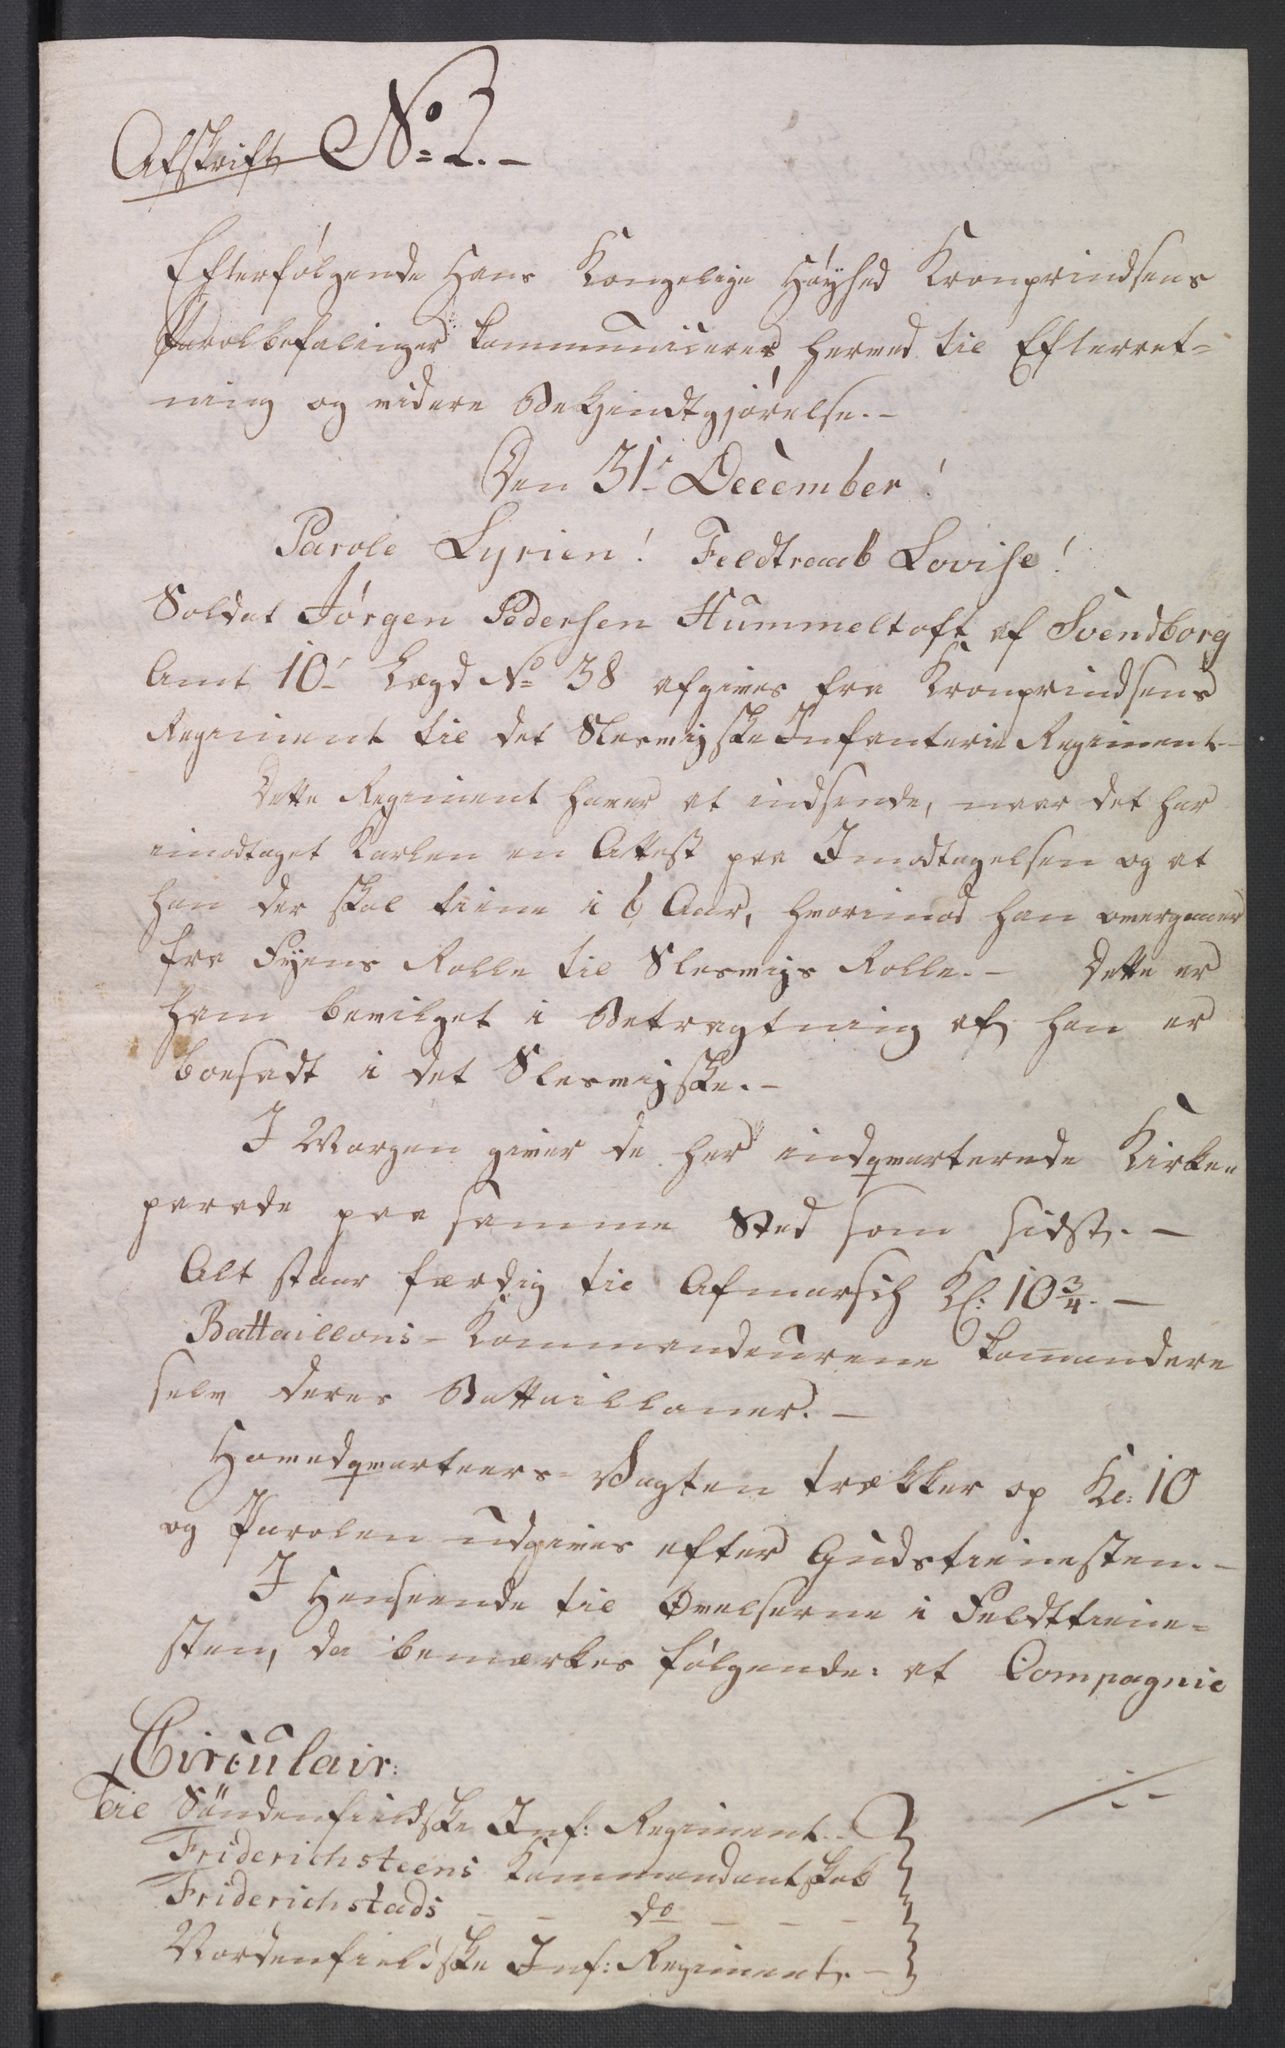 Afskrift No 2.-
Efterfølgende Hans Kongelige Høyhed Kronprindsens
Parolbefalinger kommuniceres herved til Efterret=
ning og videre Bekjendtgjørelse.-
Den 31te December!
Parole Lyrien! Feldtraab Lovise!
Soldat Jørgen Pedersen Hummeltoft af Svendborg
Amt 10de Lægd No 38 afgives fra Kronprindsens
Regiment til det Slesvigske Infanterie Regiment.-
Dette Regiment haver at indsende, naar det har
imodtaget Karlen en Attest paa Imodtagelsen og at
han der skal tiene i 6 Aar, hvorimod han overgaaer
fra Fyens Rolle til Slesvigs Rolle.- Dette er
ham bevilget i Betragtning af, han er
boesadt i det Slesvigske.-
I Morgen giver de her indqvarterede Kirke=
parade paa samme Sted som sidst.-
Alt staar færdig til Afmarsch Kl: 10 3/4.-
Battaillons-Kommandeurene komandere
selv deres Battailloner.-
Hovedqvarteers-Vagten trækker op Kl: 10
og Parolen udgives efter Gudstienesten.-
I Henseende til Øvelserne i Feldttiene=
sten, da bemærkes følgende: at Compagnie
Circulair:
Til Søndenfieldske Inf: Regiment.-
Friderichsteens Kommandantskab
Friderichstads - - do - - -
Nordenfieldske Inf: Regiment.-